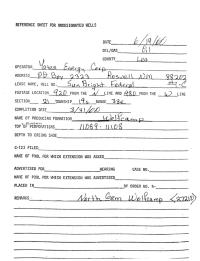 REFERENCE SHEET FOR UNDESIGNATED WELLS
DATE
OIL/GAS Oil
COUNTY Lea
OPERATOR Yates Energy Corp
ADDRESS PO Box 2323 Roswell NM 88202
LEASE NAME, WELL NO. Sunbright Federal
FOOTAGE LOCATION 920 FROM THE N LINE AND 980 FROM THE W LINE
SECTION 21 TOWNSHIP 19s RANGE 33e
COMPLETION DATE
NAME OF PRODUCING FORMATION Wolfcamp
TOP OF PERFORATIONS 11089 - 11108
DEPTH TO CASING SHOE
C-123 FILED
NAME OF POOL FOR WHICH EXTENSION WAS ASKED
ADVERTISED FOR HEARING CASE NO.
NAME OF POOL FOR WHICH EXTENSION WAS ADVERTISED
PLACED IN BY ORDER NO. R-
REMARKS North Gem Wolfcamp